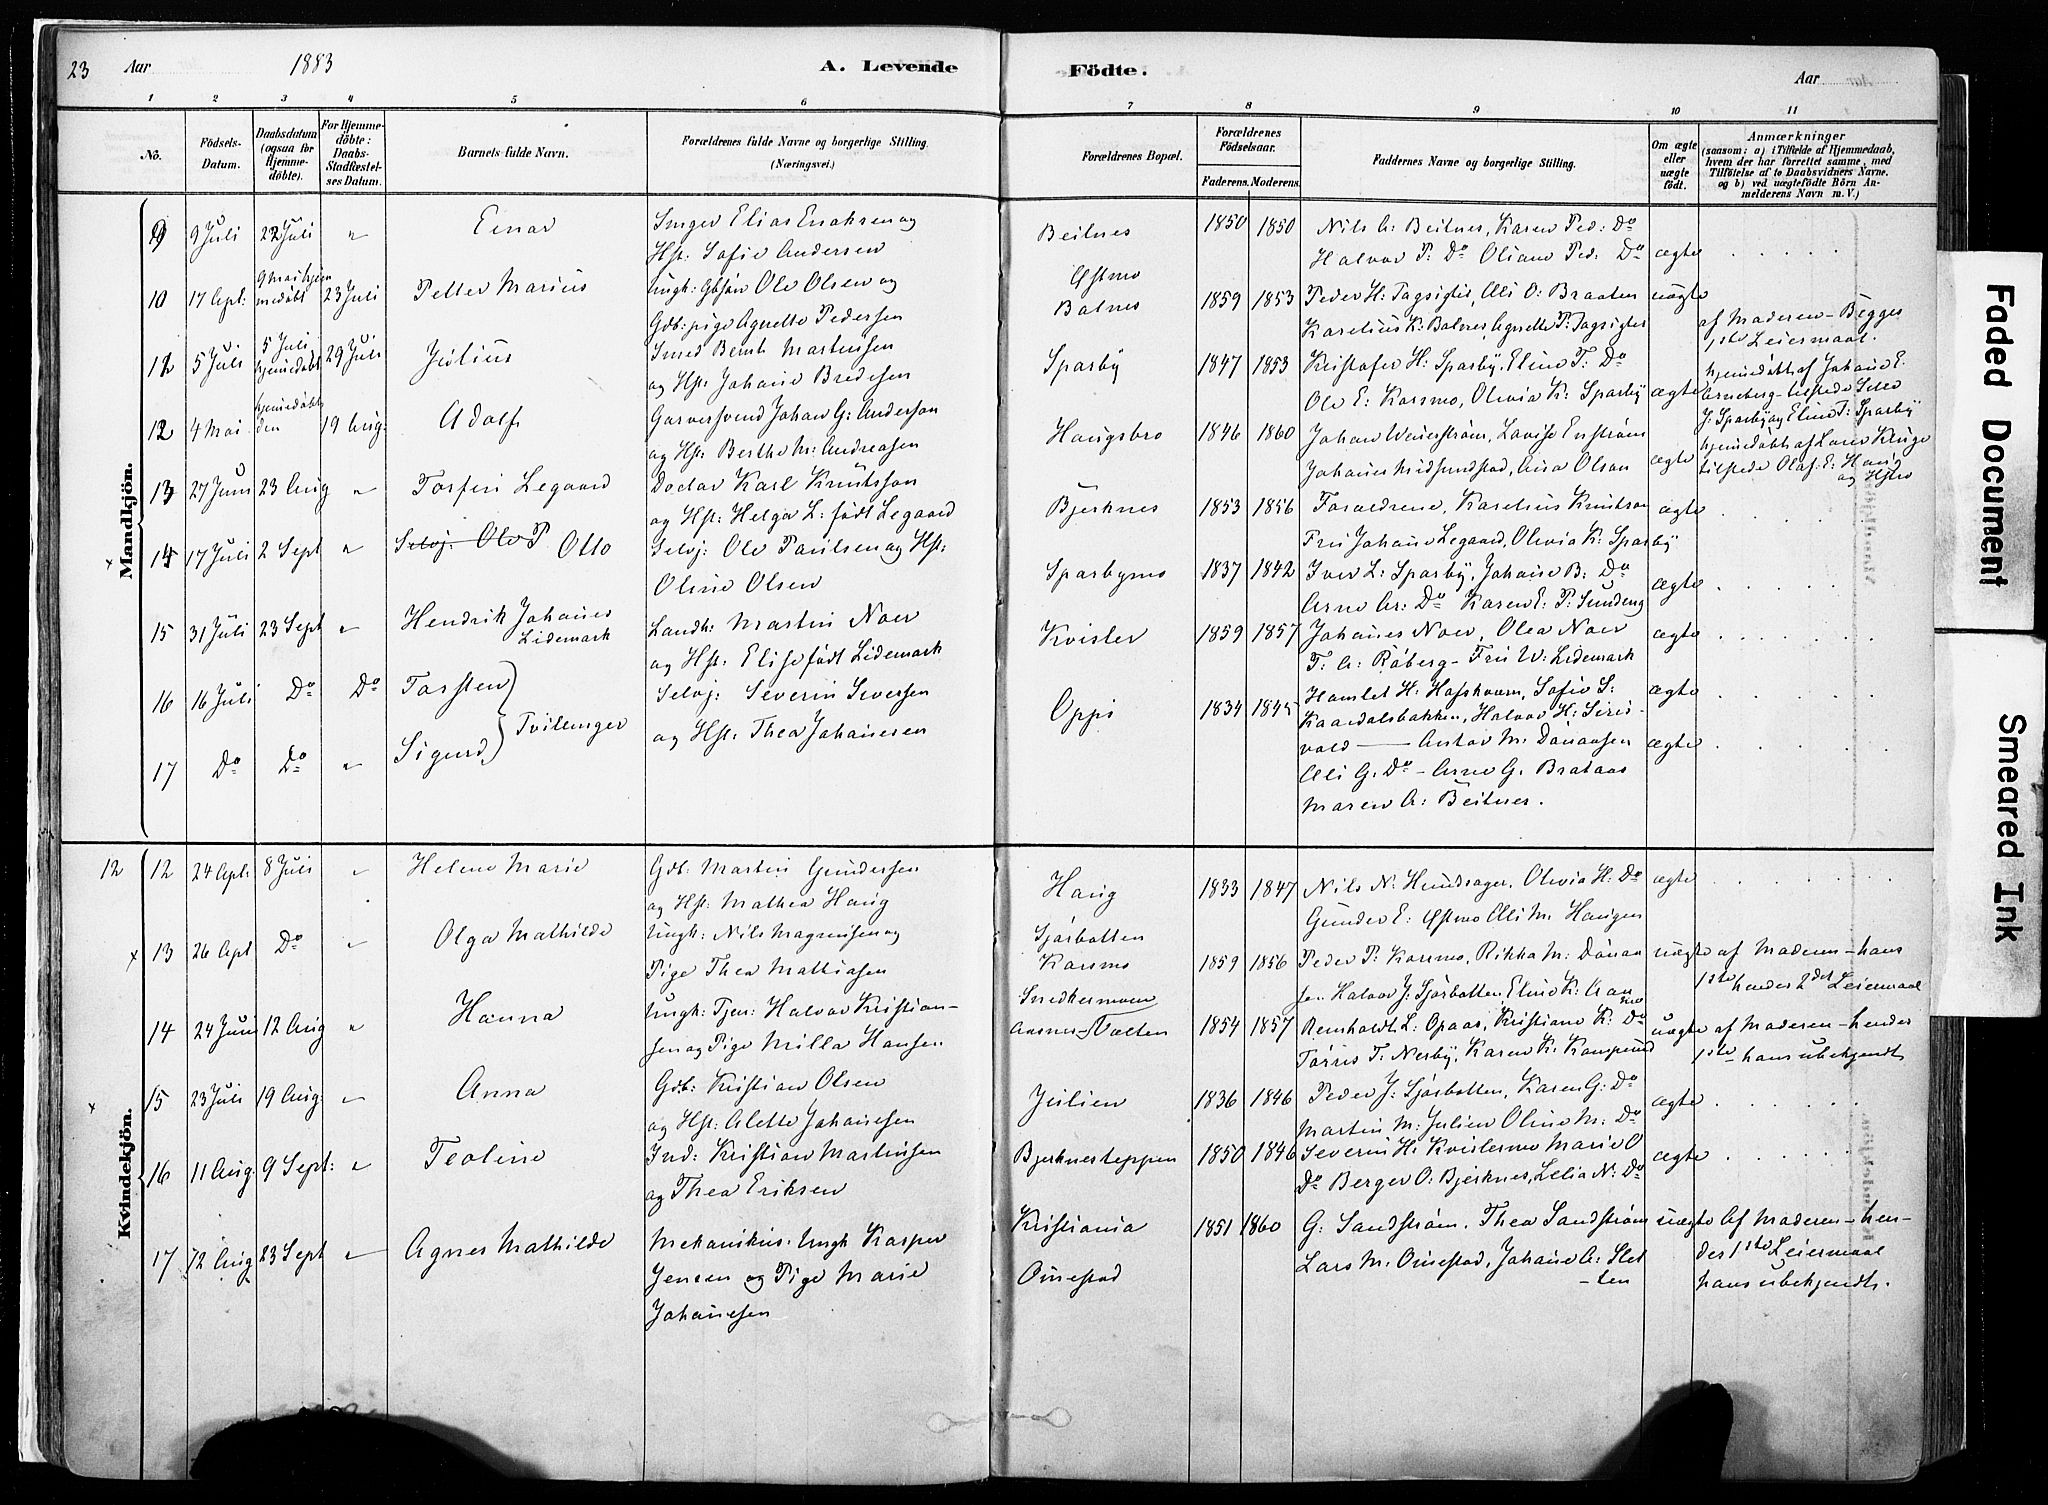 23 Aar 1883 A. Levende Födte. Aar
1 2 3 4 5 6 7 8 9 10 11
No.
Födsels-Datum.
Daabsdatum (ogsaa for Hjemme-döbte).
For Hjemme-döbte: Daabs-Stadfæstel-ses Datum.
Barnets fulde Navn.
Forældrenes fulde Navne og borgerlige Stilling. (Næringsvei.)
Forældrenes Bopæl.
Forældrenes Födselsaar.
Faderens. Moderens.
Faddernes Navne og borgerlige Stilling.
Om ægte eller uægte födt.
Anmærkninger
(saasom: a) i Tilfælde af Hjemmedaab,
hvem der har forrettet samme, med
Tilföielse af to Daabsvidners Navne.
og b) ved uægtefödte Börn An-
melderens Navn m. V.)
Mandkjön.
9 9 Juli 22 Juli " Einar Elias og
Hst. Sofie Andersen
Beitnes 1850 1850 Nils A: Beitnes, Karen Ped: Do
Halvor P: Do Oliane Ped: Do ægte
10 17 Apr: 9 Mai hjem medöbt 23 Juli Petter Marius Ungk: Ole Olsen og
Gdb: pige Agnette Pedersen
Østmo
Balnes 1859 1853 Peder H: Tagsigter, Elli O: Braaten uægte
Karelius K: Balnes, Agnette P: Tagsigter
af Moderen - Begges
1ste Leiermaal.
5 Juli 5 Juli hjemedøbt 29 Juli Julius Smed Bernt Martinsen
og Hst: Johane Bredesen
Sparby 1847 1853 Kristofer H: Sparby, Eline T: Do
Ole E: Korsmo, Olivia K: Sparby ægte
hjemedøbt af Johane E.
Arneberg tilstede
J: Sparby og Eline T: Sparby
12 4 Mai hjemedøbt den 19 Aug: Adolf Garversvend Johan G: Anderson
og Hst: Berthe M: Andreasen
Haugsbro 1846 1860 Johan Lovise Enström
Johanes Midsundstad, Anna Olsen ægte
hjemedøbt af Lars
tilstede Olaf E: Haug
og Hstro
13 27 Juni 23 Aug " Torfin Legaard Doctor Karl Knutsson
og Hst: Helga L: født Legaard
Bjerknes 1853 1856 Foraldrene, Karelius Knutson ægte
Fru Johane Legaard, Olivia K: Sparby
14 17 Juli 2 Sept " Selvj: Ole P Otto Selvj: Ole Paulsen og Hst:
Oline Olsen
Sparbymo 1837 1842 Iver L: Sparby, Johane B: Do
Arne Ar: Do Karen E: P: Sundeng ægte
15 31 Juli 23 Sept " Hendrik Johanes
Lidemark
Landh: Martin Noer
og Hst: Elise født Lidemark
Kvisler 1859 1857 Johanes Noer, Olea Noer ægte
T: A: Råberg - Fru W: Lidemark
16 16 Juli Do Do Torsten Selvj: Severin Siversen
og Hst: Thea Johanesen
Tvillinger
Oppi 1834 1845 Hamlet H: Sofie S: ægte
Kaardalsbakken, Halvor H: Siris-
vold - M: Danaasen ægte
17 Do Do " Sigurd
G. Do - Arne G. Brataas
Maren A: Beitnes.
Kvindekjön.
12 12 24 Apr: 8 Juli " Helene Marie Gdb. Martin Gundersen
og Hst: Mathea Haug
Haug 1833 1847 Nils N: Hundsager, Olivia H: Do ægte
Gunder E: Østmo Elli M. Haugen
x 13 26 Apr Do " Olga Mathilde Ungk: Nils Magnusen og
Pige Thea Mathiasen
Sjørbotten
Korsmo 1859 1856 Peder P: Korsmo, Rikka M: Danaa uægte
sen Halvor J: Sjørbotten, Eline K:
af Moderen - hans
1ste hendes 2det Leiermaal
14 24 Juni 12 Aug " Hanna Ungk: Tjen: Halvor Kristian-
sen og Pige Milla Hansen
Snedkermoen
Aasnes-Valten 1854 1857 Reinholdt L: Opaas, Kristiane K: Do uægte
Törris T: Nerby, Karen K: Kampund
af Moderen - hendes
1ste - hans ubekjendt
x 15 23 Juli 19 Aug: " Anna Gdb: Kristian Olsen
og Hst: Alette Johanesen
Julien 1836 1846 Peder J: Sjørbotten, Karen G: Do
Martin M: Julien Oline M: Do ægte
16 11 Aug: 9 Sept: " Teoline Ind: Kristian Martinsen
og Thea Eriksen
Bjerknesteppen 1850 1846 Severin H: Kvislermo Marie O ægte
Do Berger O: Bjerknes, Lelia N: Do
17 12 Aug 23 Sept " Agnes Mathilde Mekanikus: Ungk Kasper
Jensen og Pige Marie
Johanesen
Kristiania
Ouestad 1851 1860 G: Sandstrøm, Thea Sandstrøm uægte
Lars M: Ouestad, Johane A: Slet
-ten
Af Moderen - hen-
des 1ste Leiermaal
hans ubekjendt.
Faded Document
Smeared Ink